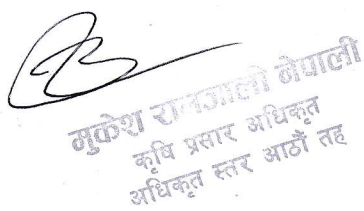 मुकेश रामजाली नेपाली
कृषि प्रसार अधिकृत
अधिकृत स्तर आठौं तह